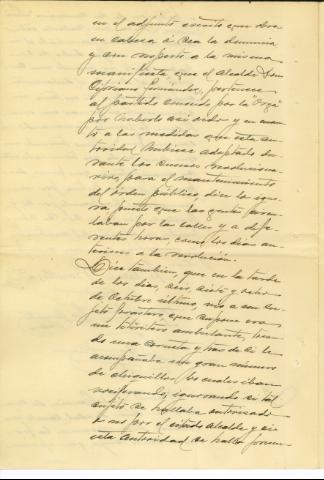 en el adjunto escrito que da
en cabeza á ésta la denuncia
y con respecto a la misma
manifiesta que el Alcalde Don
Cipriano Fernández, pertenece
al partido conocido por la
por haberlo así oido y en cuan-
to a las medidas que esta au-
toridad hubiese adoptado du-
rante los sucesos revoluciona-
rios, para el mantenimiento
del órden público, dice lo igno-
ra puesto que las gentes
laban por las calles y a dife-
rentes horas, como los dias an-
teriores a la revolucion.
Dice tambien, que en la tarde
de los dias, seis, siete y ocho
de Octubre último, vió a un su-
jeto forastero, que supone era
un titiritero ambulante,
do una corneta y tras de él le
acompañaba un gran número
de chiquillos los cuales iban
vociferando, ignorando si tal
sujeto se hallaba autorizado
o no por el citado Alcalde y si
esta autoridad se halla